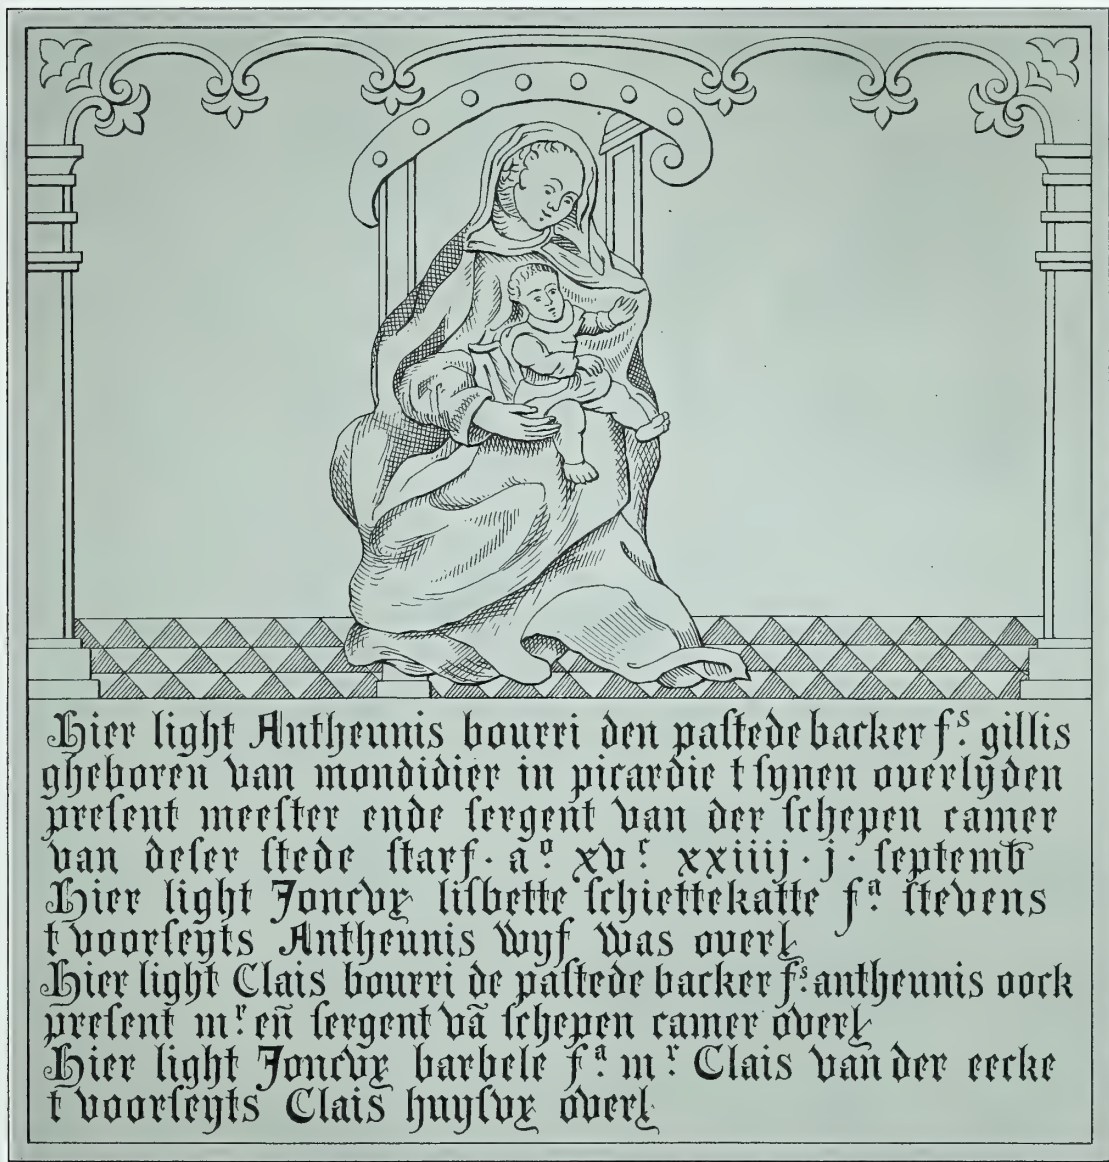 Hier light Antheunis bourri den pastede backer fˢ. gillis
gheboren van mondidier in picardie t synen overlyden
present meester ende sergent van der schepen camer
van deser stede starf · a° xvᶜ xxiiij · j · septemb
Hier light Joncvr lisbette schiettekatte fᵃ. stevens
t voorseyts Antheunis wyf was overl
Hier light Clais bourri de pastede backer fˢ. antheunis oock
present mʳ. en̄ sergent vā schepen camer overl
Hier light Joncvr barbele fᵃ. mʳ. Clais van der eecke
t voorseyts Clais huysvr overl